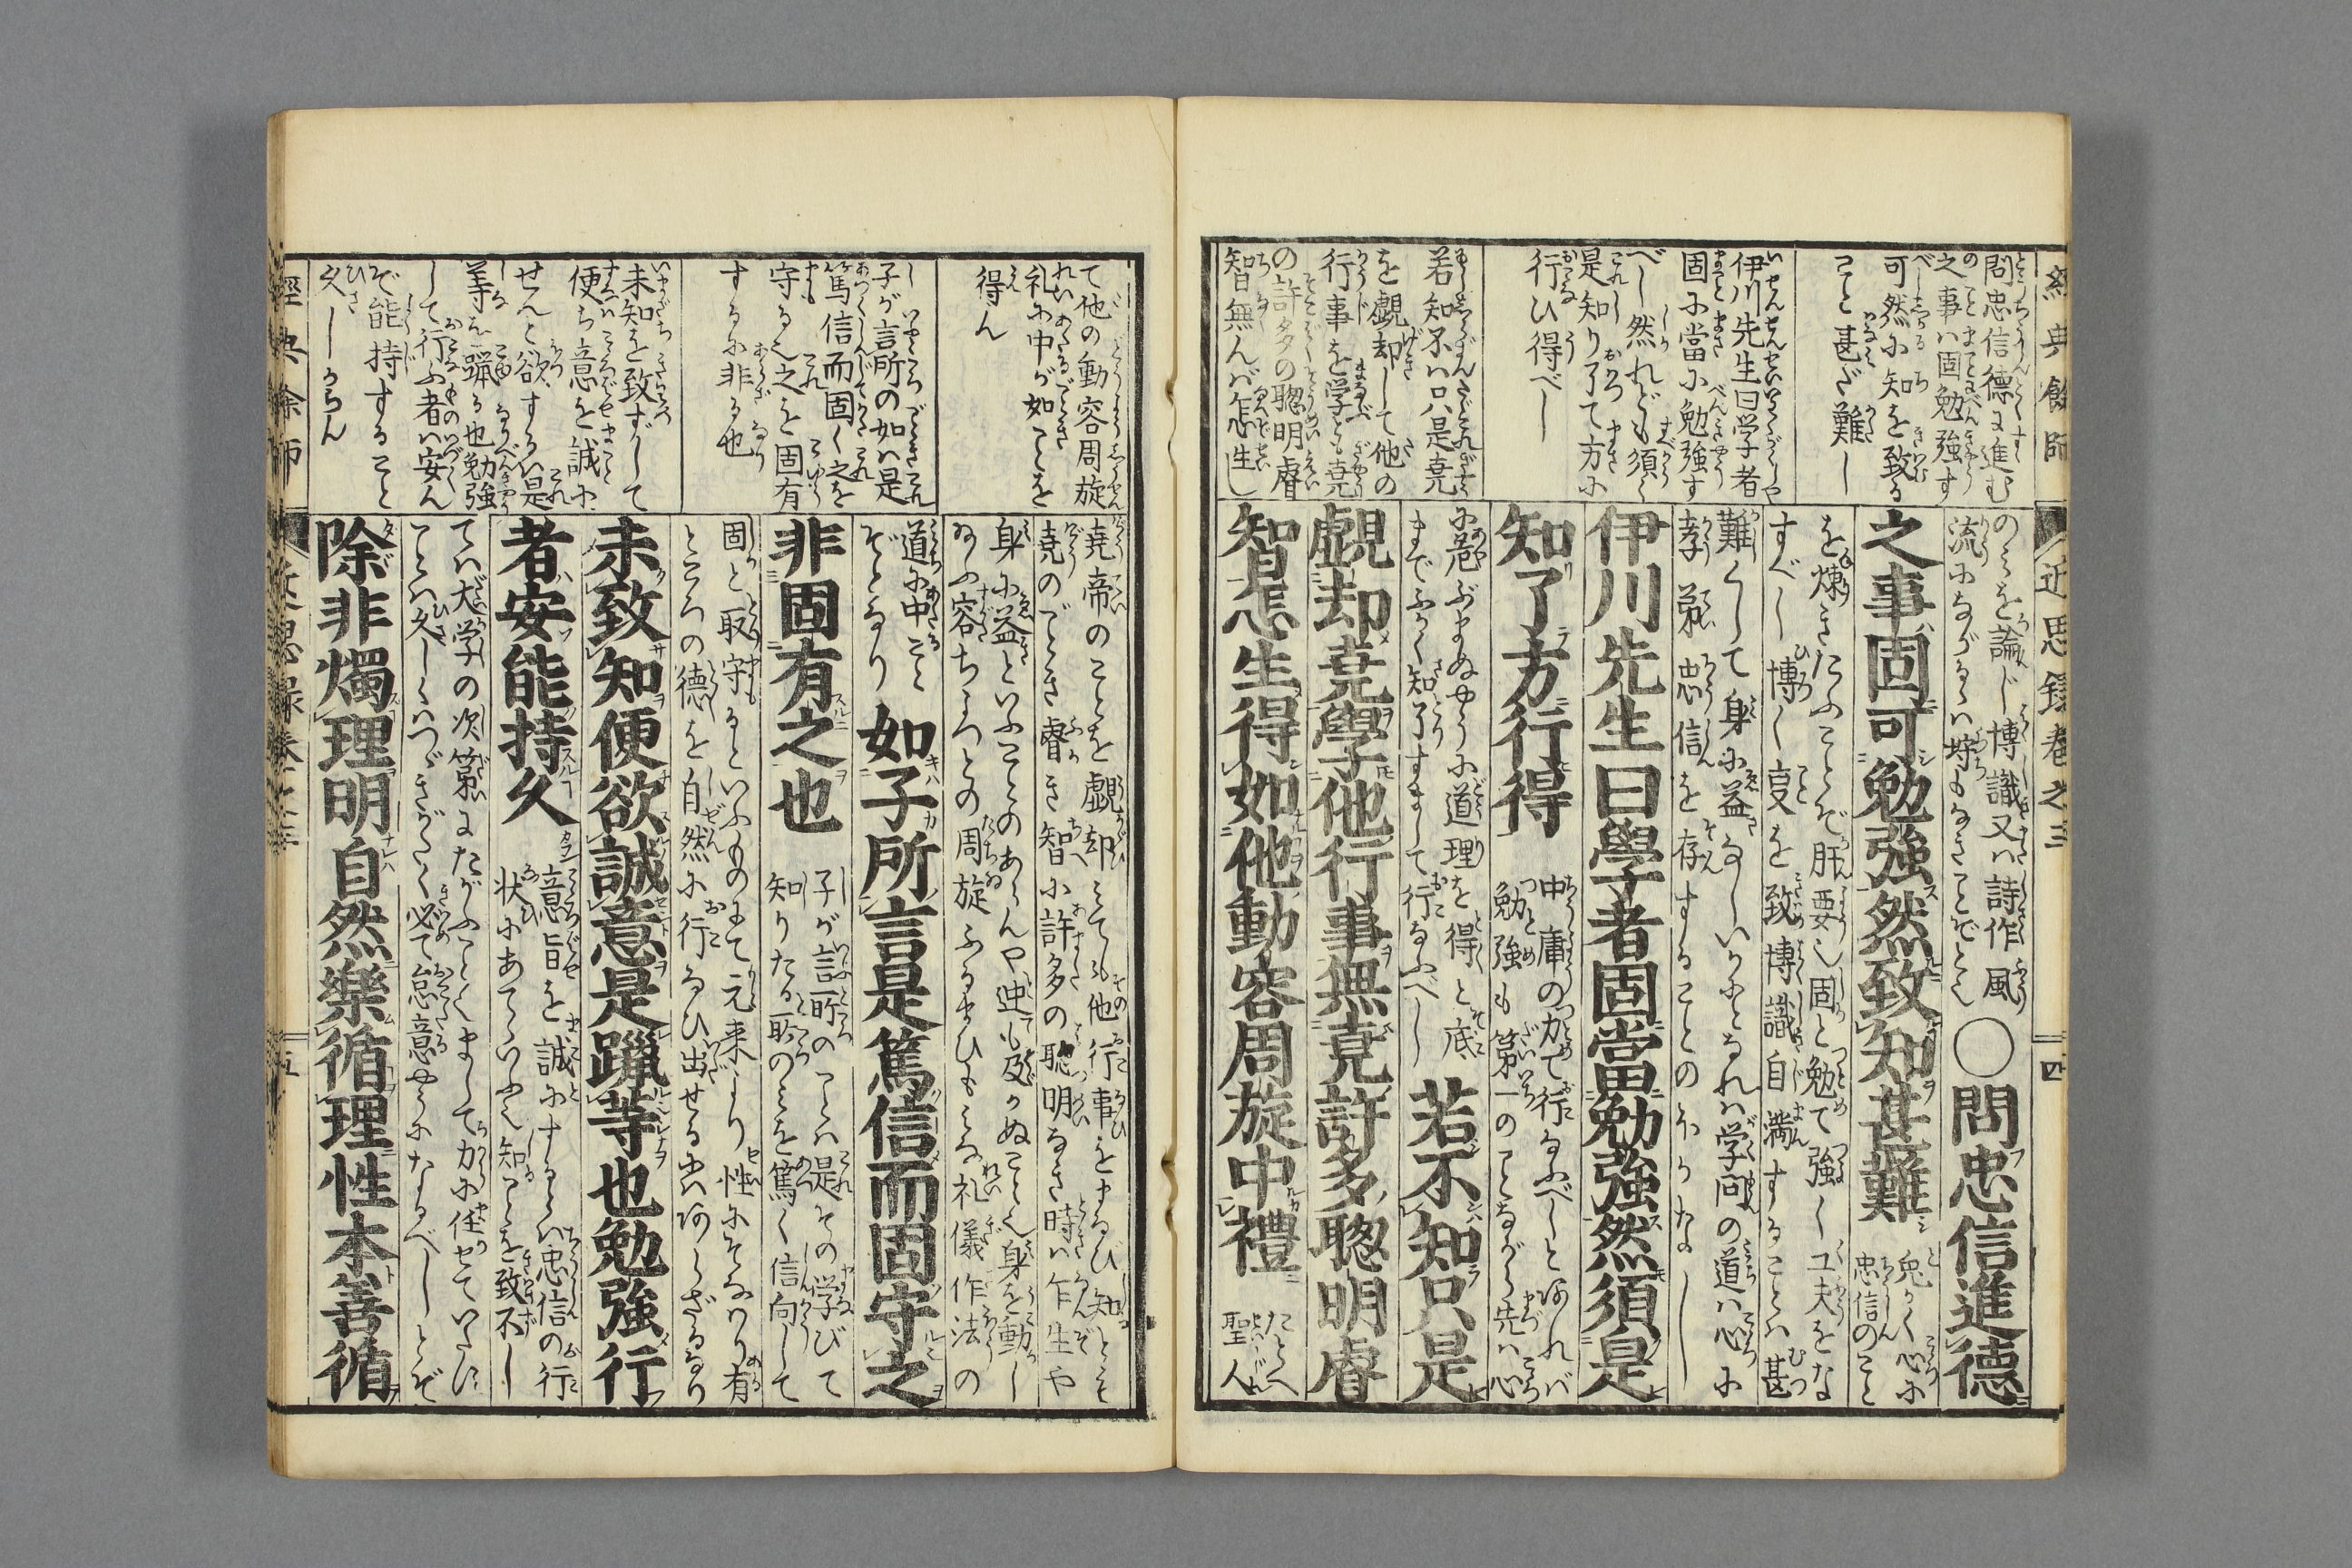 經典餘師
近思録巻之三
四
問忠信徳に進む
之事ハ固勉強す
べし
可然に知を致る
こと甚ざ難し
伊川先生曰学者
固に當に勉強す
べし然れども須く
是知り了て方に
行ひ得べし
若知不ハ只是尭
を覷却して他の
行事を学とも尭
の許多の聡明睿
智無んバ怎生し
のミを論じ博識又ハ詩作風
流にながるゝハ
問忠信進德
之事固可勉強然致知甚難
兎かく心に
忠信のこと
を煉きたふことぞ肝要也固と勉て強く工夫をな
すべし博く事を致め博識自満することハ甚
難くして身に益なしいかとなれハ学問の道ハ心に
孝弟忠信を存することのほかなし
伊川先生曰學者固當勉強然須是
知了方行得
中庸の力て行なふべしとあれバ
勉強も第一のことながら先ハ心
に危ぶまぬやうに道理を得と底
までふかく知了すまして行なふべし
若不知只是
覷却尭學他行事無尭許多聰明睿
智怎生得如他動容周旋中禮
たとへ
聖人
て他の動容周旋
礼に中が如ことを
得ん
子が言所の如ハ是
篤信而固く之を
守る之之を固有
するに非る也
未知を致ずして
便ち意を誠に
せんと欲するハ是
等を躐る也勉強
して行ふ者ハ安ん
ぞ能持すること
久しからん
堯帝のことを覷却ミても他行事をまなび知とても
堯のごとき睿き智に許多の聡明なき時ハ乍生や
身に益といふことのあらんや迚も及かぬこと也身を動し
なふ容ちみちとの周旋ふるまひもミな礼儀作法の
道に中こと
ぞとなり
如子所言是篤信而固守之
非固有之也
子が言所のことハ是その学びて
知りたる所のミを篤く信向して
固と取守るといふものにて元来より性にそなハり有
ところの徳を自然に行なひ出せるにハあらざるなり
未致知便欲誠意是躐等也勉強行
者安能持久
意旨を誠にするとハ忠信の行
状にあてゝいふ也知ことを致不し
てハ大学の次第にたがふことくまして力に任せていたに
ことハ久しくハつゞきがたく必て怠意やうになるべしとぞ
除非燭理明自然樂循理性本善循
經典餘師
近思録巻之三
五